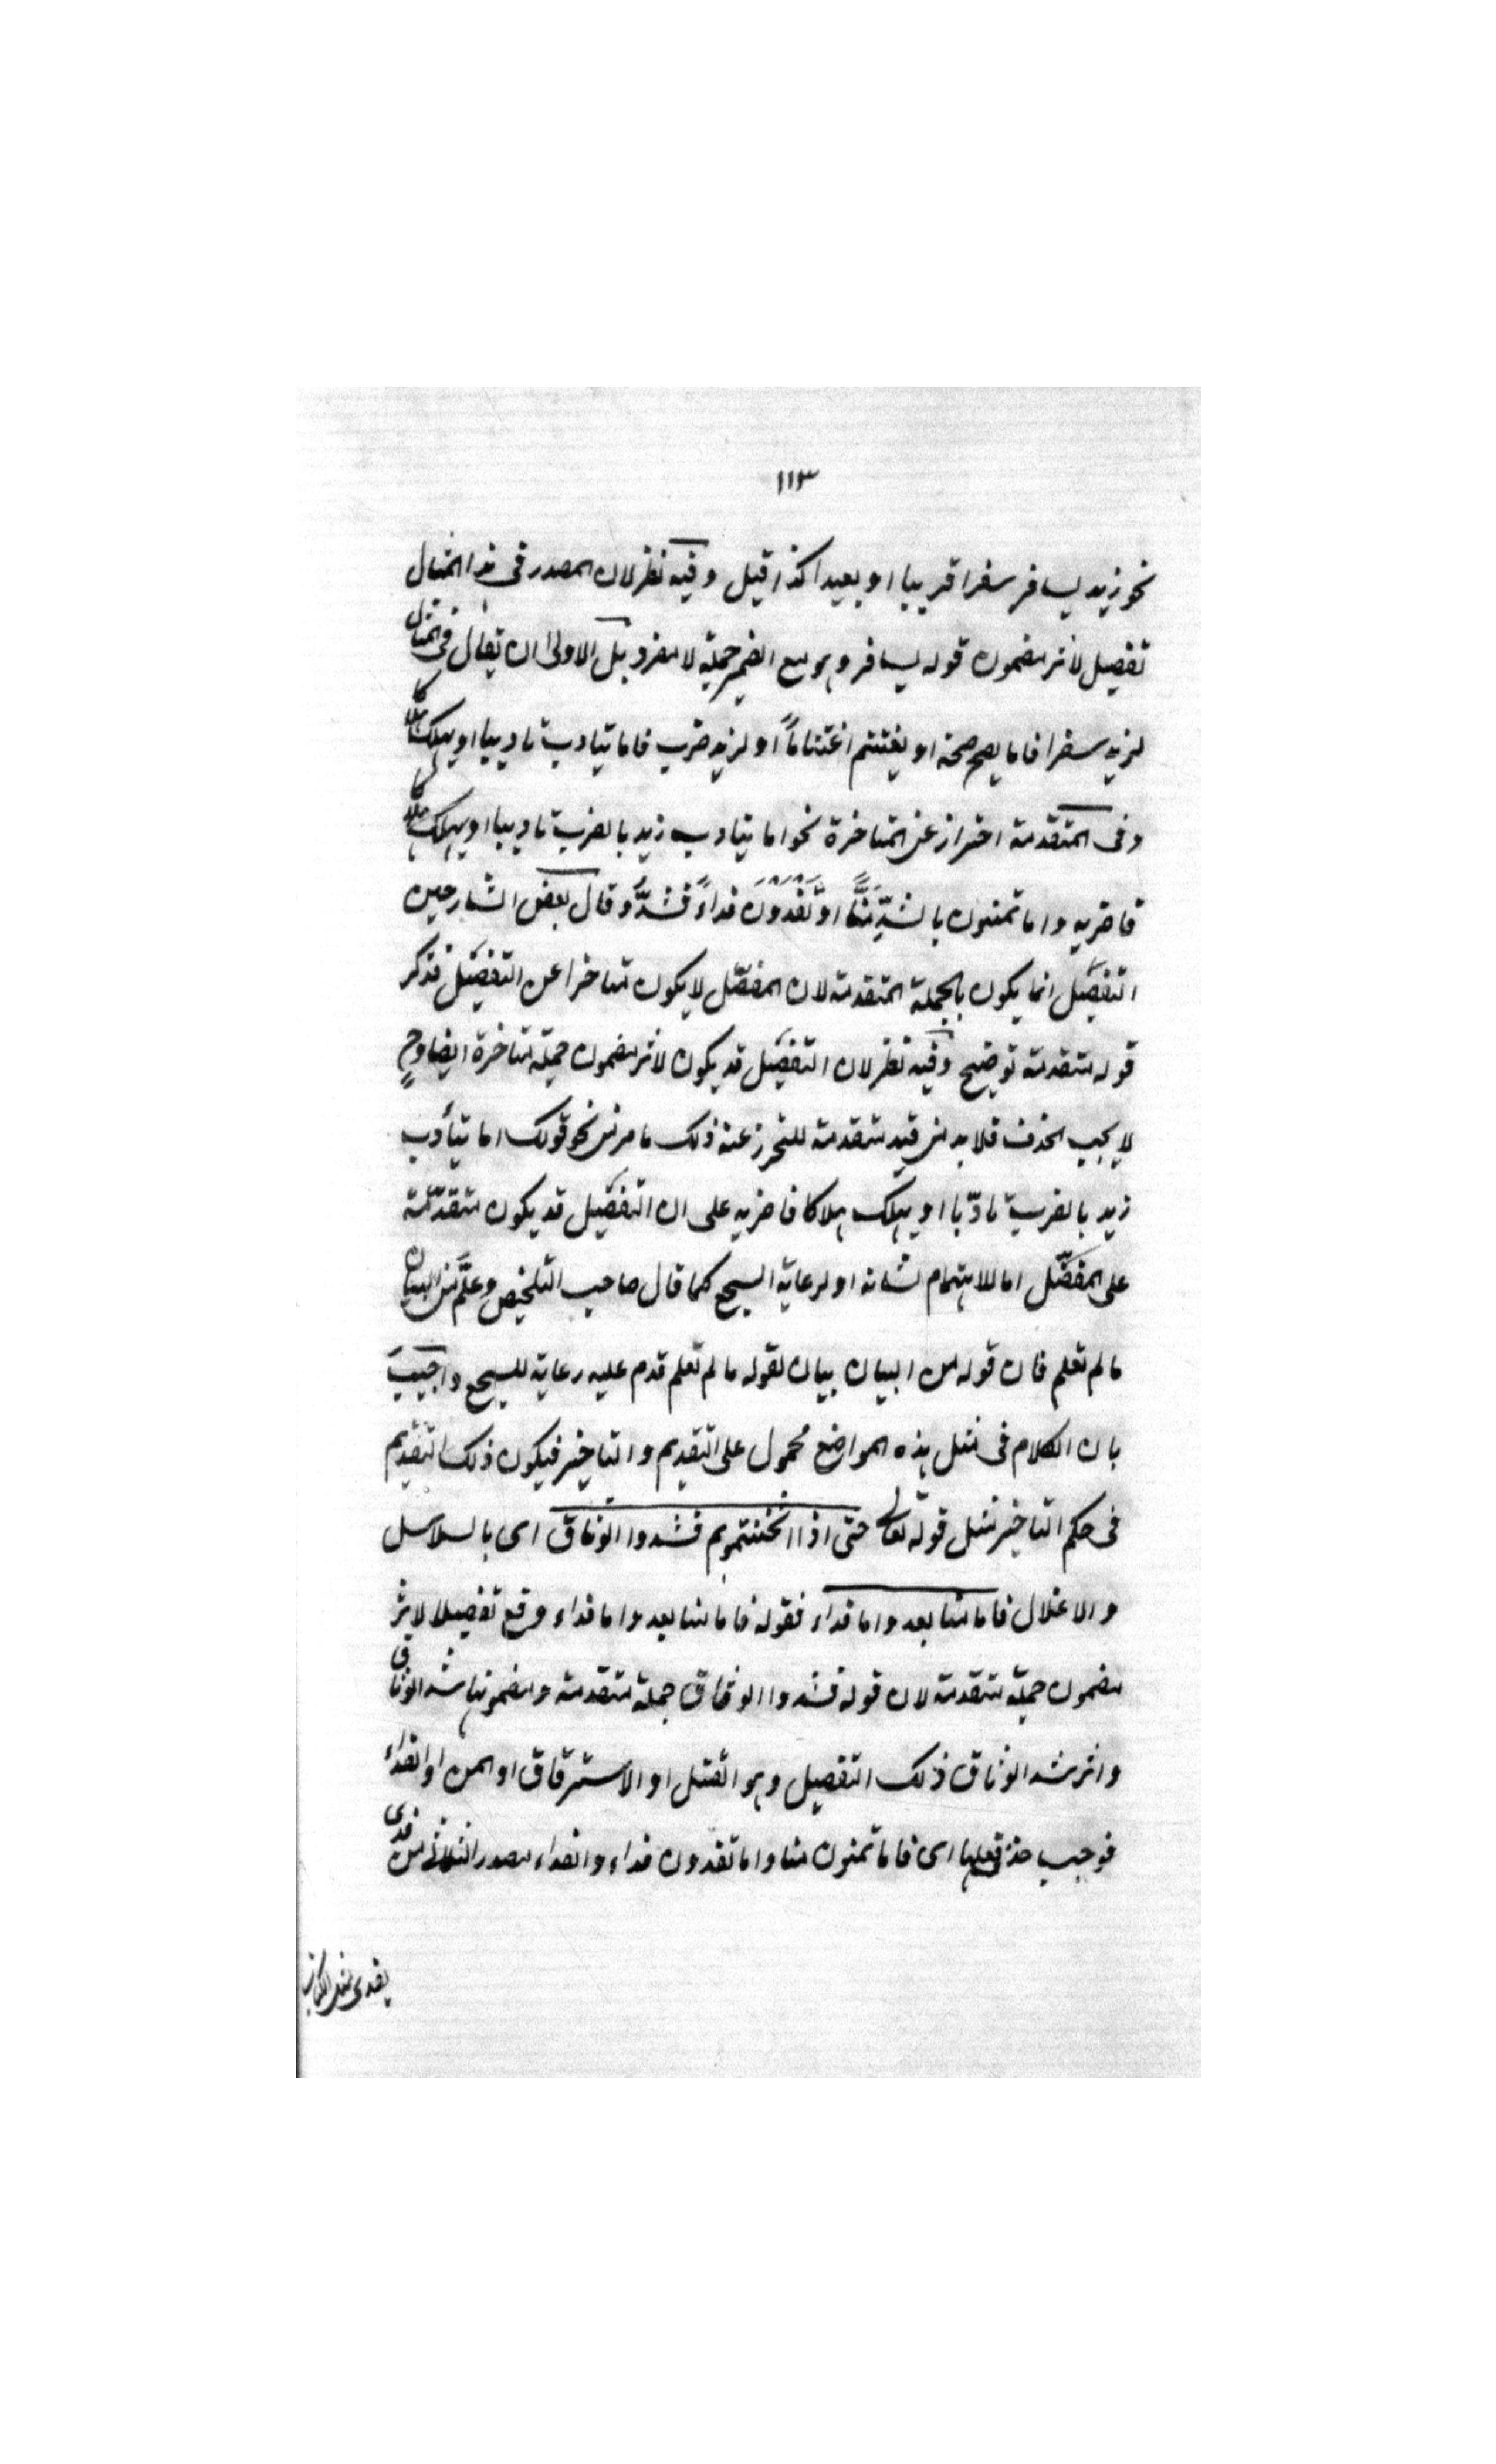 ١١٣
نحو زيد يسافر سفرا قريبا او بعيدا كذا قيل وفيه نظر لان المصدر فى هذا المثال
تفصيل لاثر مضمون قوله يسافر وهو مع الضمير جملة لا مفرد بل الاولى ان يقال فى المثال
لزيد سفر فاما يصح صحة او يغتنم اغتناماً او لزيد ضرب فاما يتادب تاديبا او يهلك هلاكا
وفى المتقدمة احتراز عن المتاخرة نحو اما يتادب زيد بالضرب تاديبا او يهلك هلاكا
فاضربه واما تمنون بالشدِّ مَنًّا او تَفْدُوْنَ فداءً فشدُّوْ وقال بعض الشارحين
التفصيل انما يكون بالجملة المتقدمة لان المفصّل لا يكون متاخرا عن التفصيل فذكر
قوله متقدمة توضيح وفيه نظر لان التفصيل قد يكون لاثر مضمون جملة متاخرة ايضا وح
لا يجب الحذف فلا بد من قيد متقدمة للتحرز عنه ذلك ما مر من نحو قولك اما يتأدب
زيد بالضرب تادّبا او يهلك هلاكا فاضربه على ان التفصيل قد يكون متقدّمة
على المفصَّل اما للاهتمام لشانه او لرعاية السجع كما قال صاحب التلخيص وعلَّم من البيان
ما لم تعلم فان قوله من البيان بيان لقوله ما لم تعلم قدم عليه رعاية للسجع واجيب
بان الكلام فى مثل هذه المواضع محمول على التقديم والتاخير فيكون ذلك التقديم
فى حكم التاخير مثل قوله تعالى حتى اذا اثخنتموهم فشدوا الوثاق اى بالسلاسل
والاغلال فاما منا بعد واما فداء فقوله فاما منا بعد واما فداء وقع تفصيلا لاثر
مضمون جملة متقدمة لان قوله فشدوا الوثاق جملة متقدمة ومضمونها شد الوثاق
واثر شد الوثاق ذلك التفصيل وهو القتل او الاسترقاق او المن او الفداء
فوجب حذف فعلها اى فاما تمنون منا واما تفدون فداء والفداء مصدر الثلاثى من فدى
يفدى